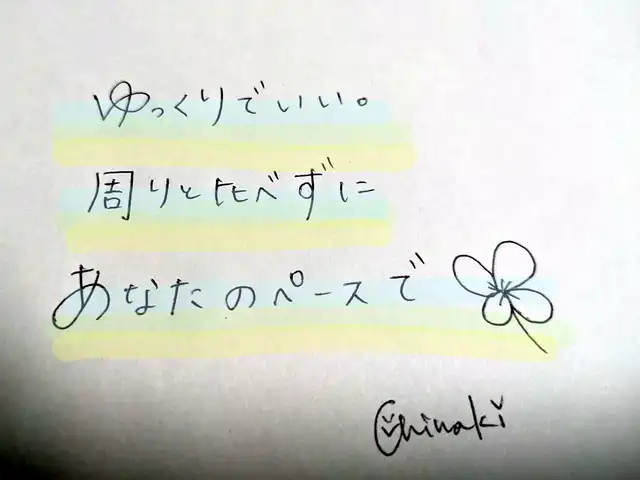 ゆっくりでいい。
周りと比べずに
あなたのペースで
Chinaki